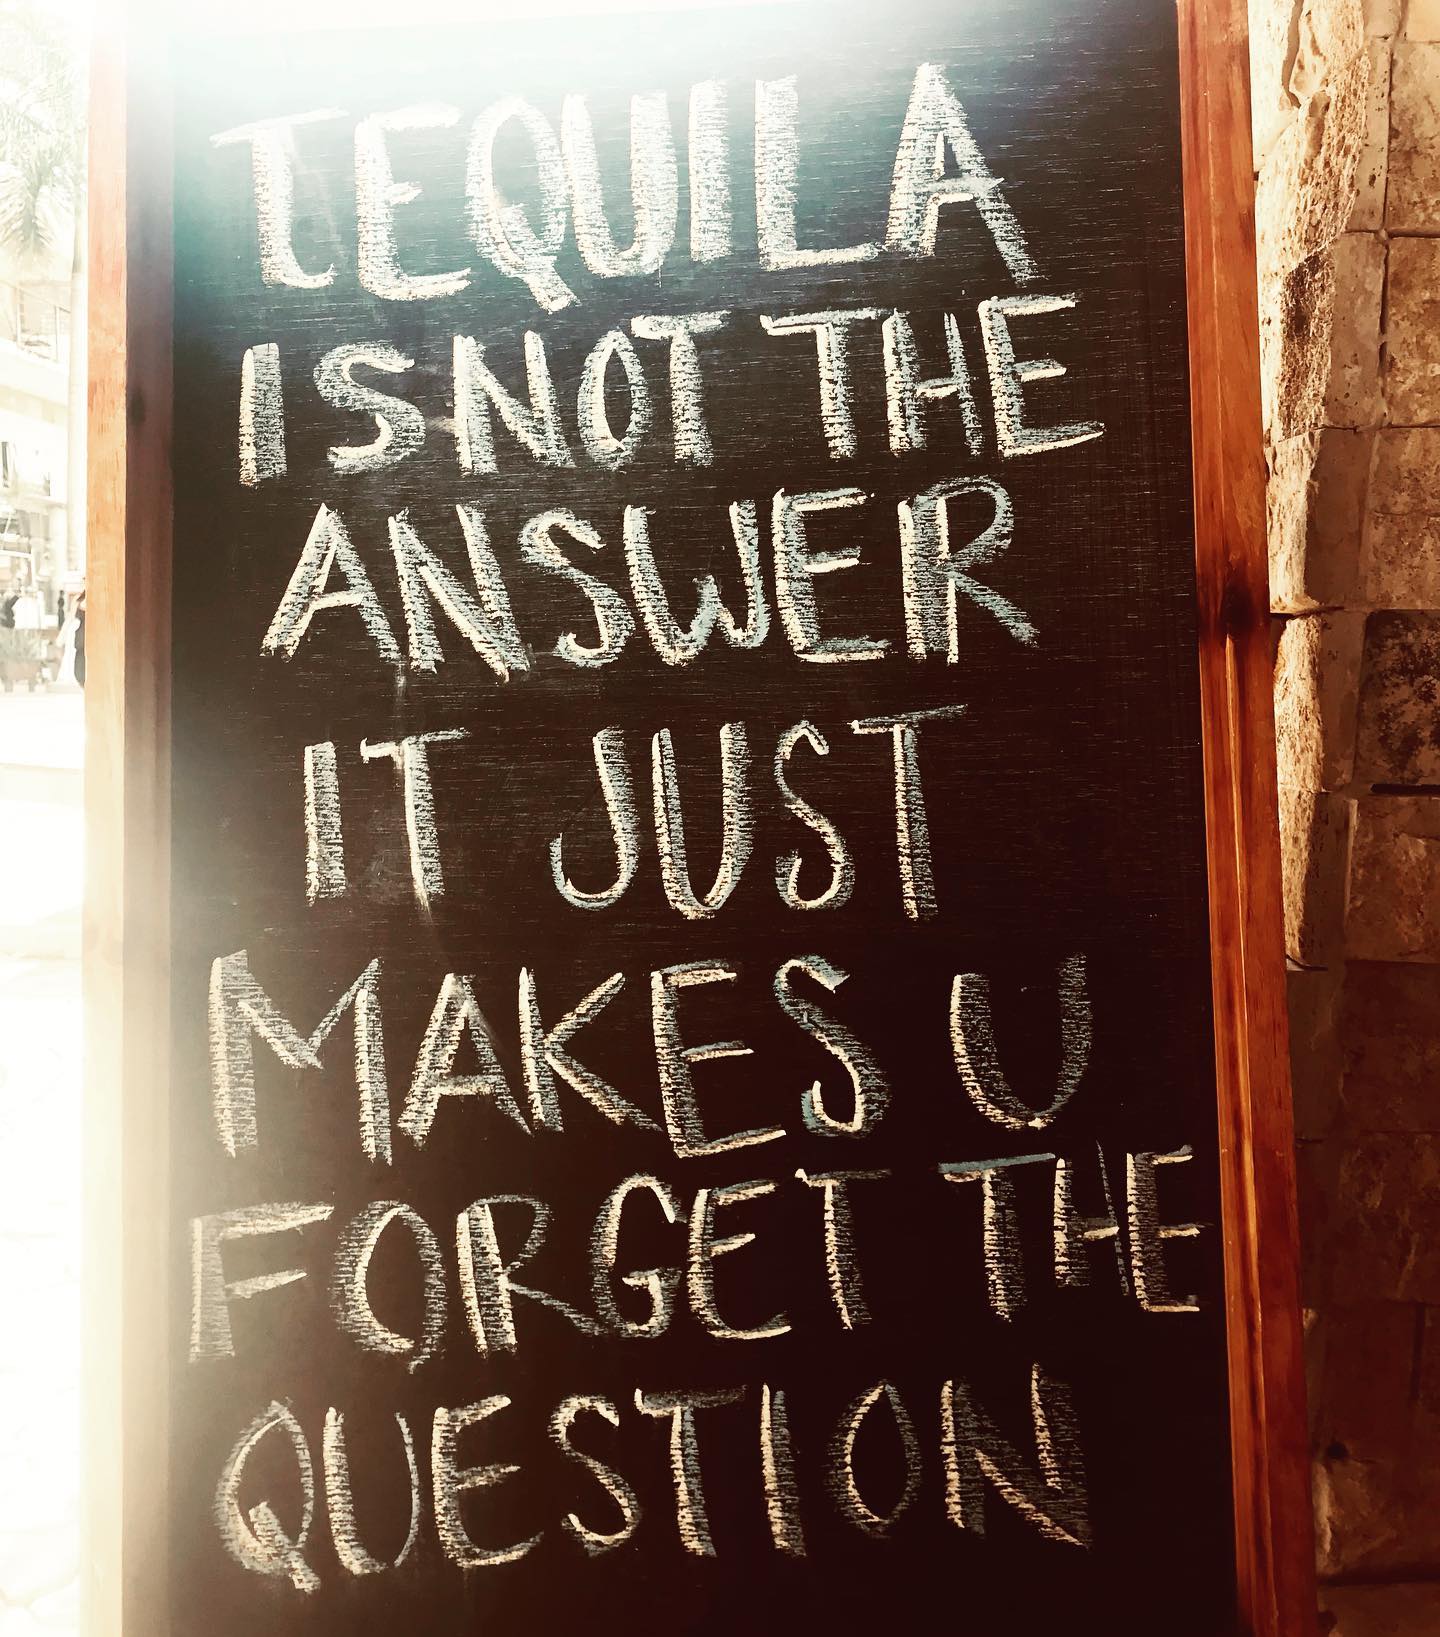 TEQUILA
IS NOT THE
ANSWER
IT JUST
MAKES U
FORGET THE
QUESTION